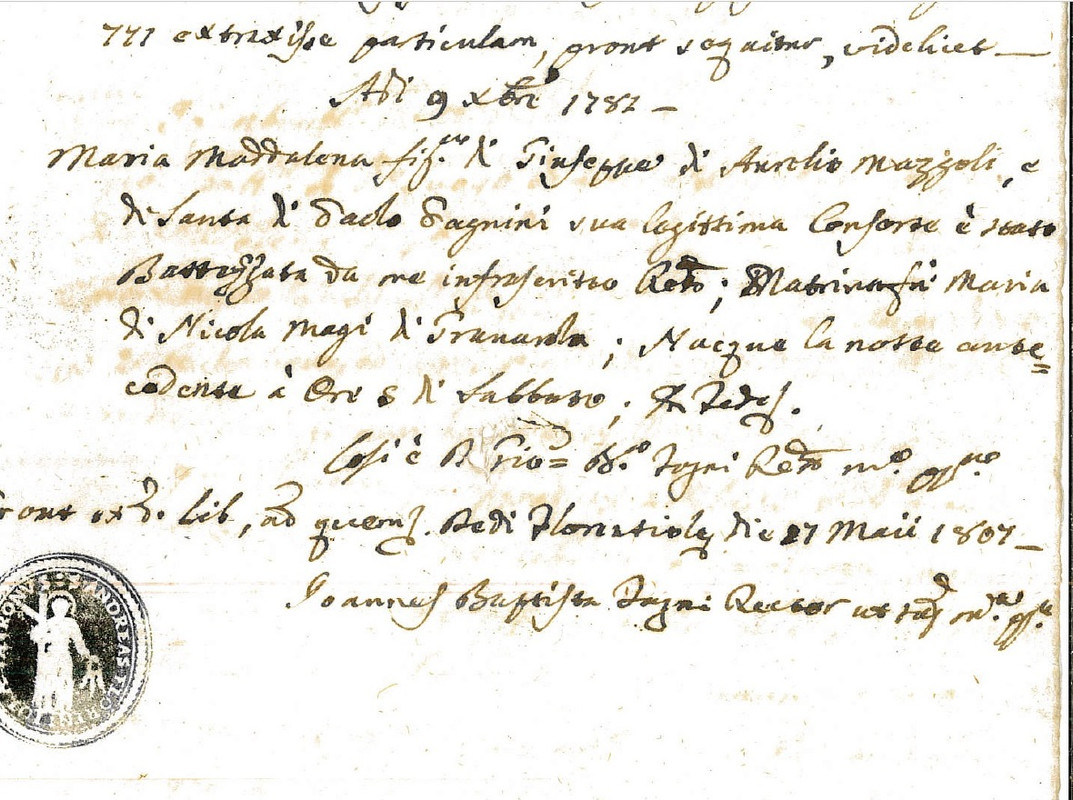 771 extraxisse particulam, prout sequitur, videlicet —
Adì 9 Xbre 1782 —
Maria Maddalena fig.a di Giuseppe di Aurelio Mazzoli, e
di Santa di Paolo Pagnini sua legittima Consorte è stata
Battezzata da me infrascritto Retto; Matrina fù Maria
di Nicola Magi di Granarola; Nacque la notte ante=
cedente à Ore 5 di Sabbato;
Così è Gio= B.a Tagni
lib, ad quem Maii 1807 —
Joannes Baptista Tagni Rector
S ANDREAS